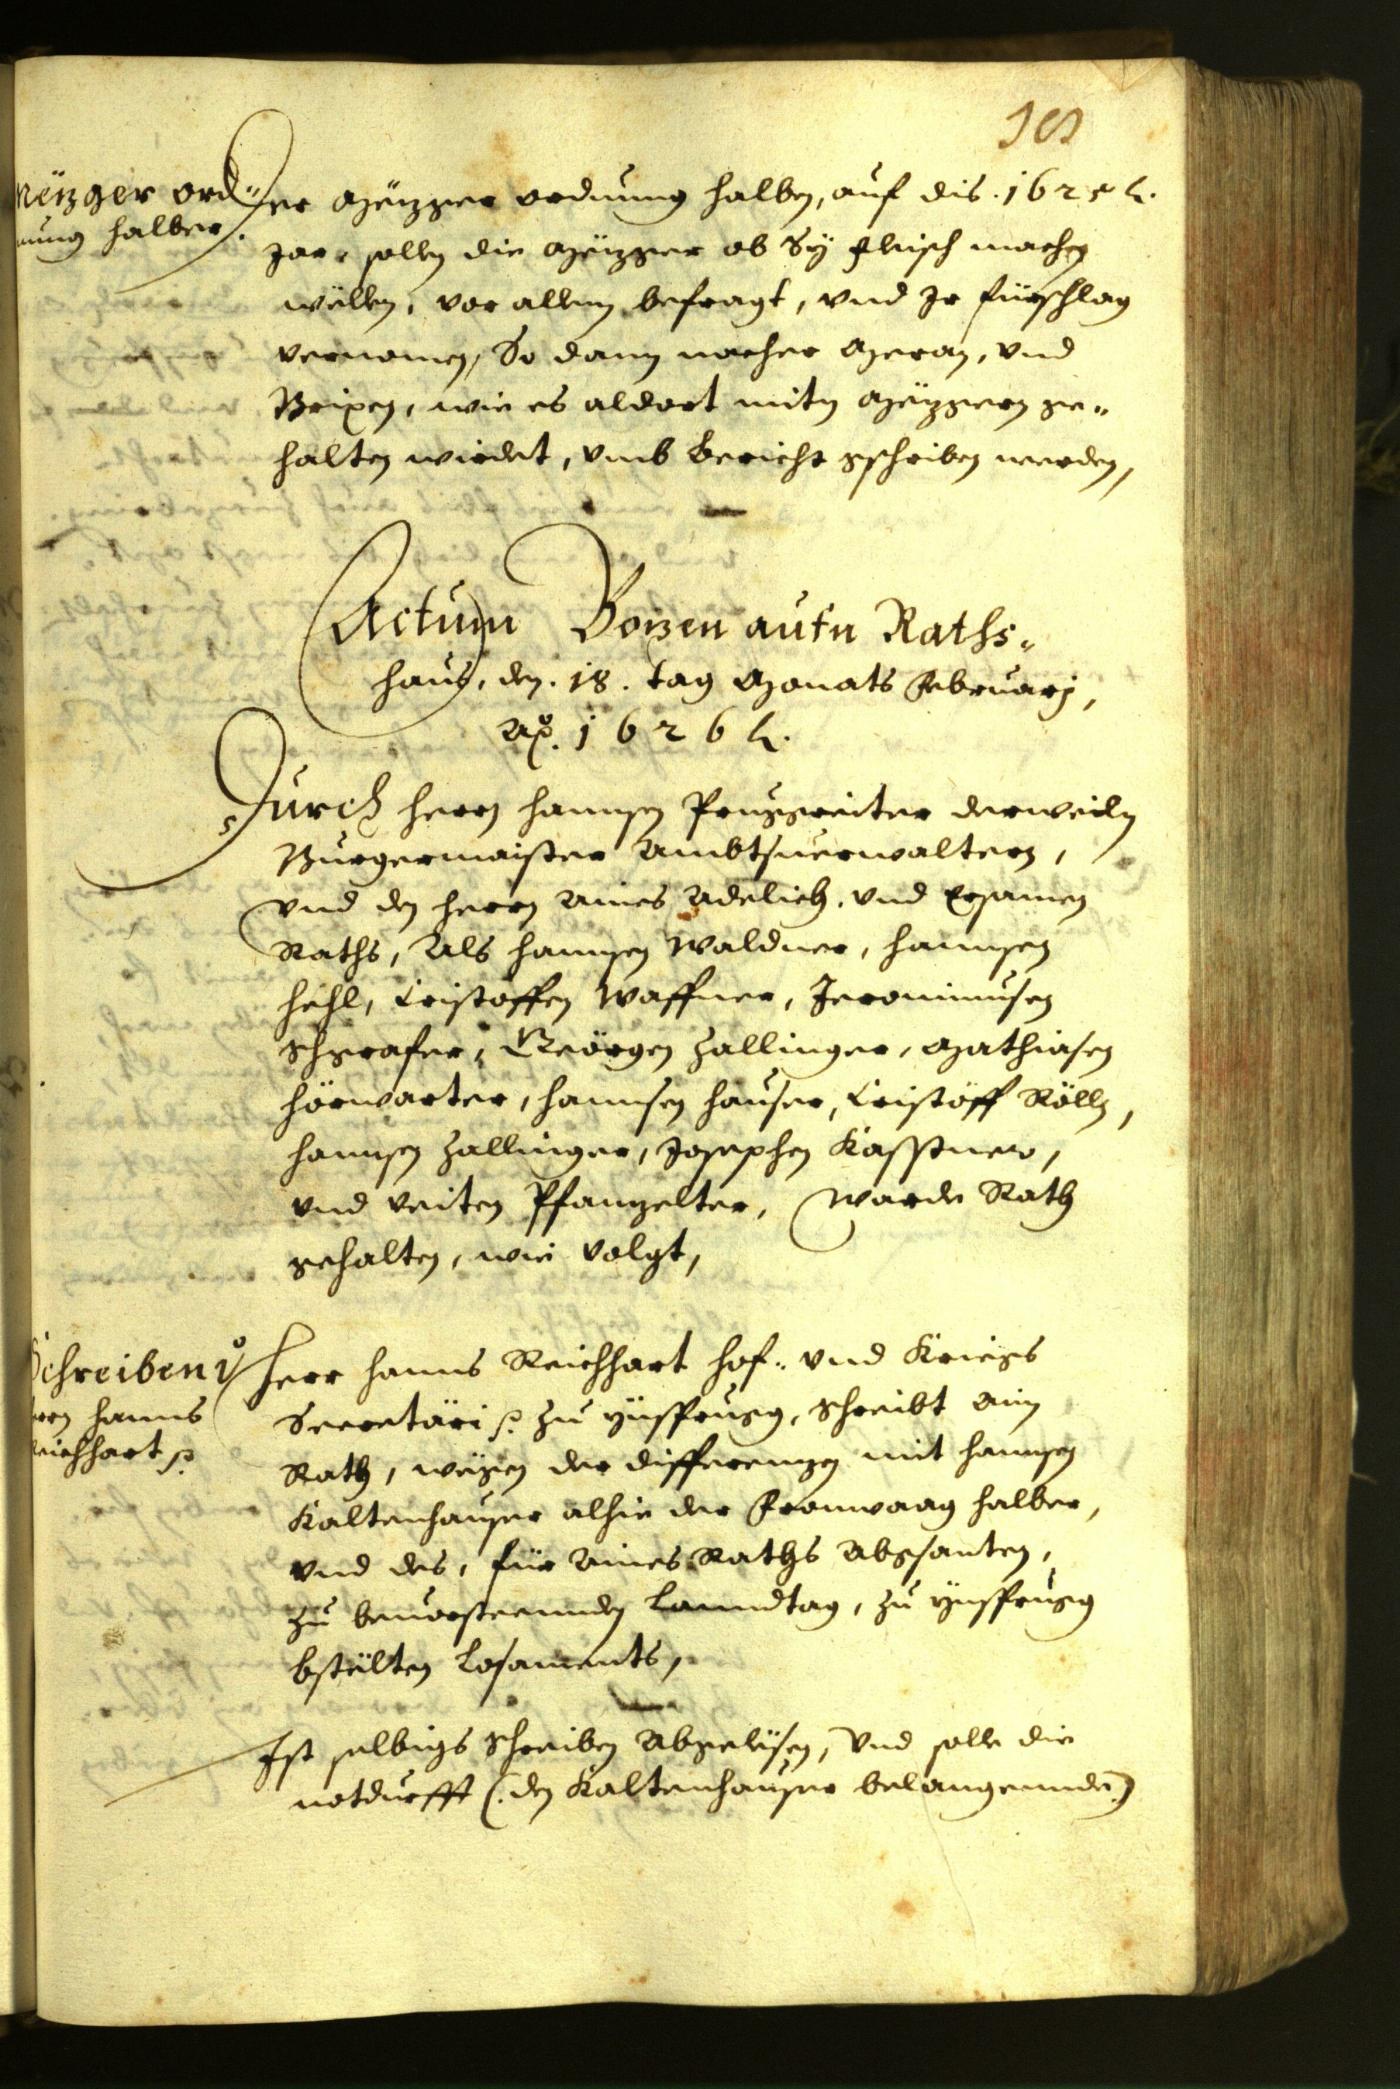 Mëtzger ord=
nung halber.
Der Mëtzger ordnung halben, auf dis .1625 h.
Jar, sollen die Mëtzger ob Sÿ fleisch machen
wëllen, vor allem befragt, vnd Jr fürschlag
vernomen, So dann nacher Meran, vnd
Brixen, wie es aldort mitn Mëtzgern ge=
halten wirdet, vmb bericht gschriben werden,
Actum Botzen aufn Raths=
haus, den .18. tag Monats Februarj,
Aõ. 1626 h.
Durch herrn hannsen Pruggreiter derweiln
Burgermaister Ambtsverwaltern,
vnd den herrn Aines Adelich, vnd Ersamen
Raths, Als hannsen Waldner, hannsen
hehl, Cristoffen Waffner, Jeronimusen
Schgrafer, Geörgen Zallinger, Mathiasen
hörwarter, hannsen hauser, Cristoff Rölln,
hannsen Zallinger, Josephen Kasstner,
vnd Veiten Pfanzelter, Warde Rath
gehalten, wie volgt,
Schreiben v
herrn hanns
Reichhart p.
Herr hanns Reichhart hof= vnd Kriegs
Secretäri p. zu Ynsprugg, schreibt ain
Rath, wëgen der differenzen mit hannsen
Kaltenhauser alhie der Fronwaag halber,
vnd des, für Aines Raths Abgsanten,
zu bevorsteenden Lanndtag, zu Ynsprugg
bstëlten Losaments,
Ist selbigs schreiben Abgelësen, Vnd solle die
notdurfft (den Kaltenhauser belangennde)